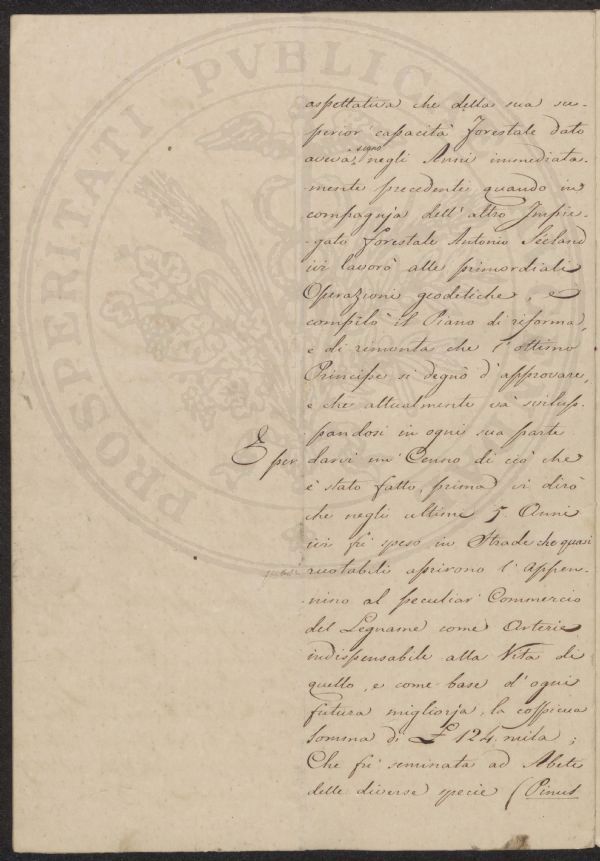 PROSPERITATI PVBLICAE
aspettativa che della sua su-
perior capacità forestale dato
aveva segno negli Anni immediata-
mente precedenti, quando in
compagnja dell' altro Impie-
-gato forestale Antonio Seeland
ivi lavorò alle primordiali
Operazioni geodetiche, e
compilò il Piano di riforma,
e di rimonta che l'ottimo
Principe si degnò d'approvare,
e che attualmente và svilup-
-pandosi in ogni sua parte
E per darvi un' Cenno di ciò che
è stato fatto, prima vi dirò
che negli ultimi 5. Anni
ivi fù speso in Strade che quasi
ruotabili aprirono l'Appen-
-nino al peculiar' Commercio
del Legname come Arterie
indispensabile alla Vita di
quello, e come base d'ogni
futura migliorja, la cospicua
somma di £ 124. mila;
Che fù seminata ad Abete
delle diverse specie (Pinus